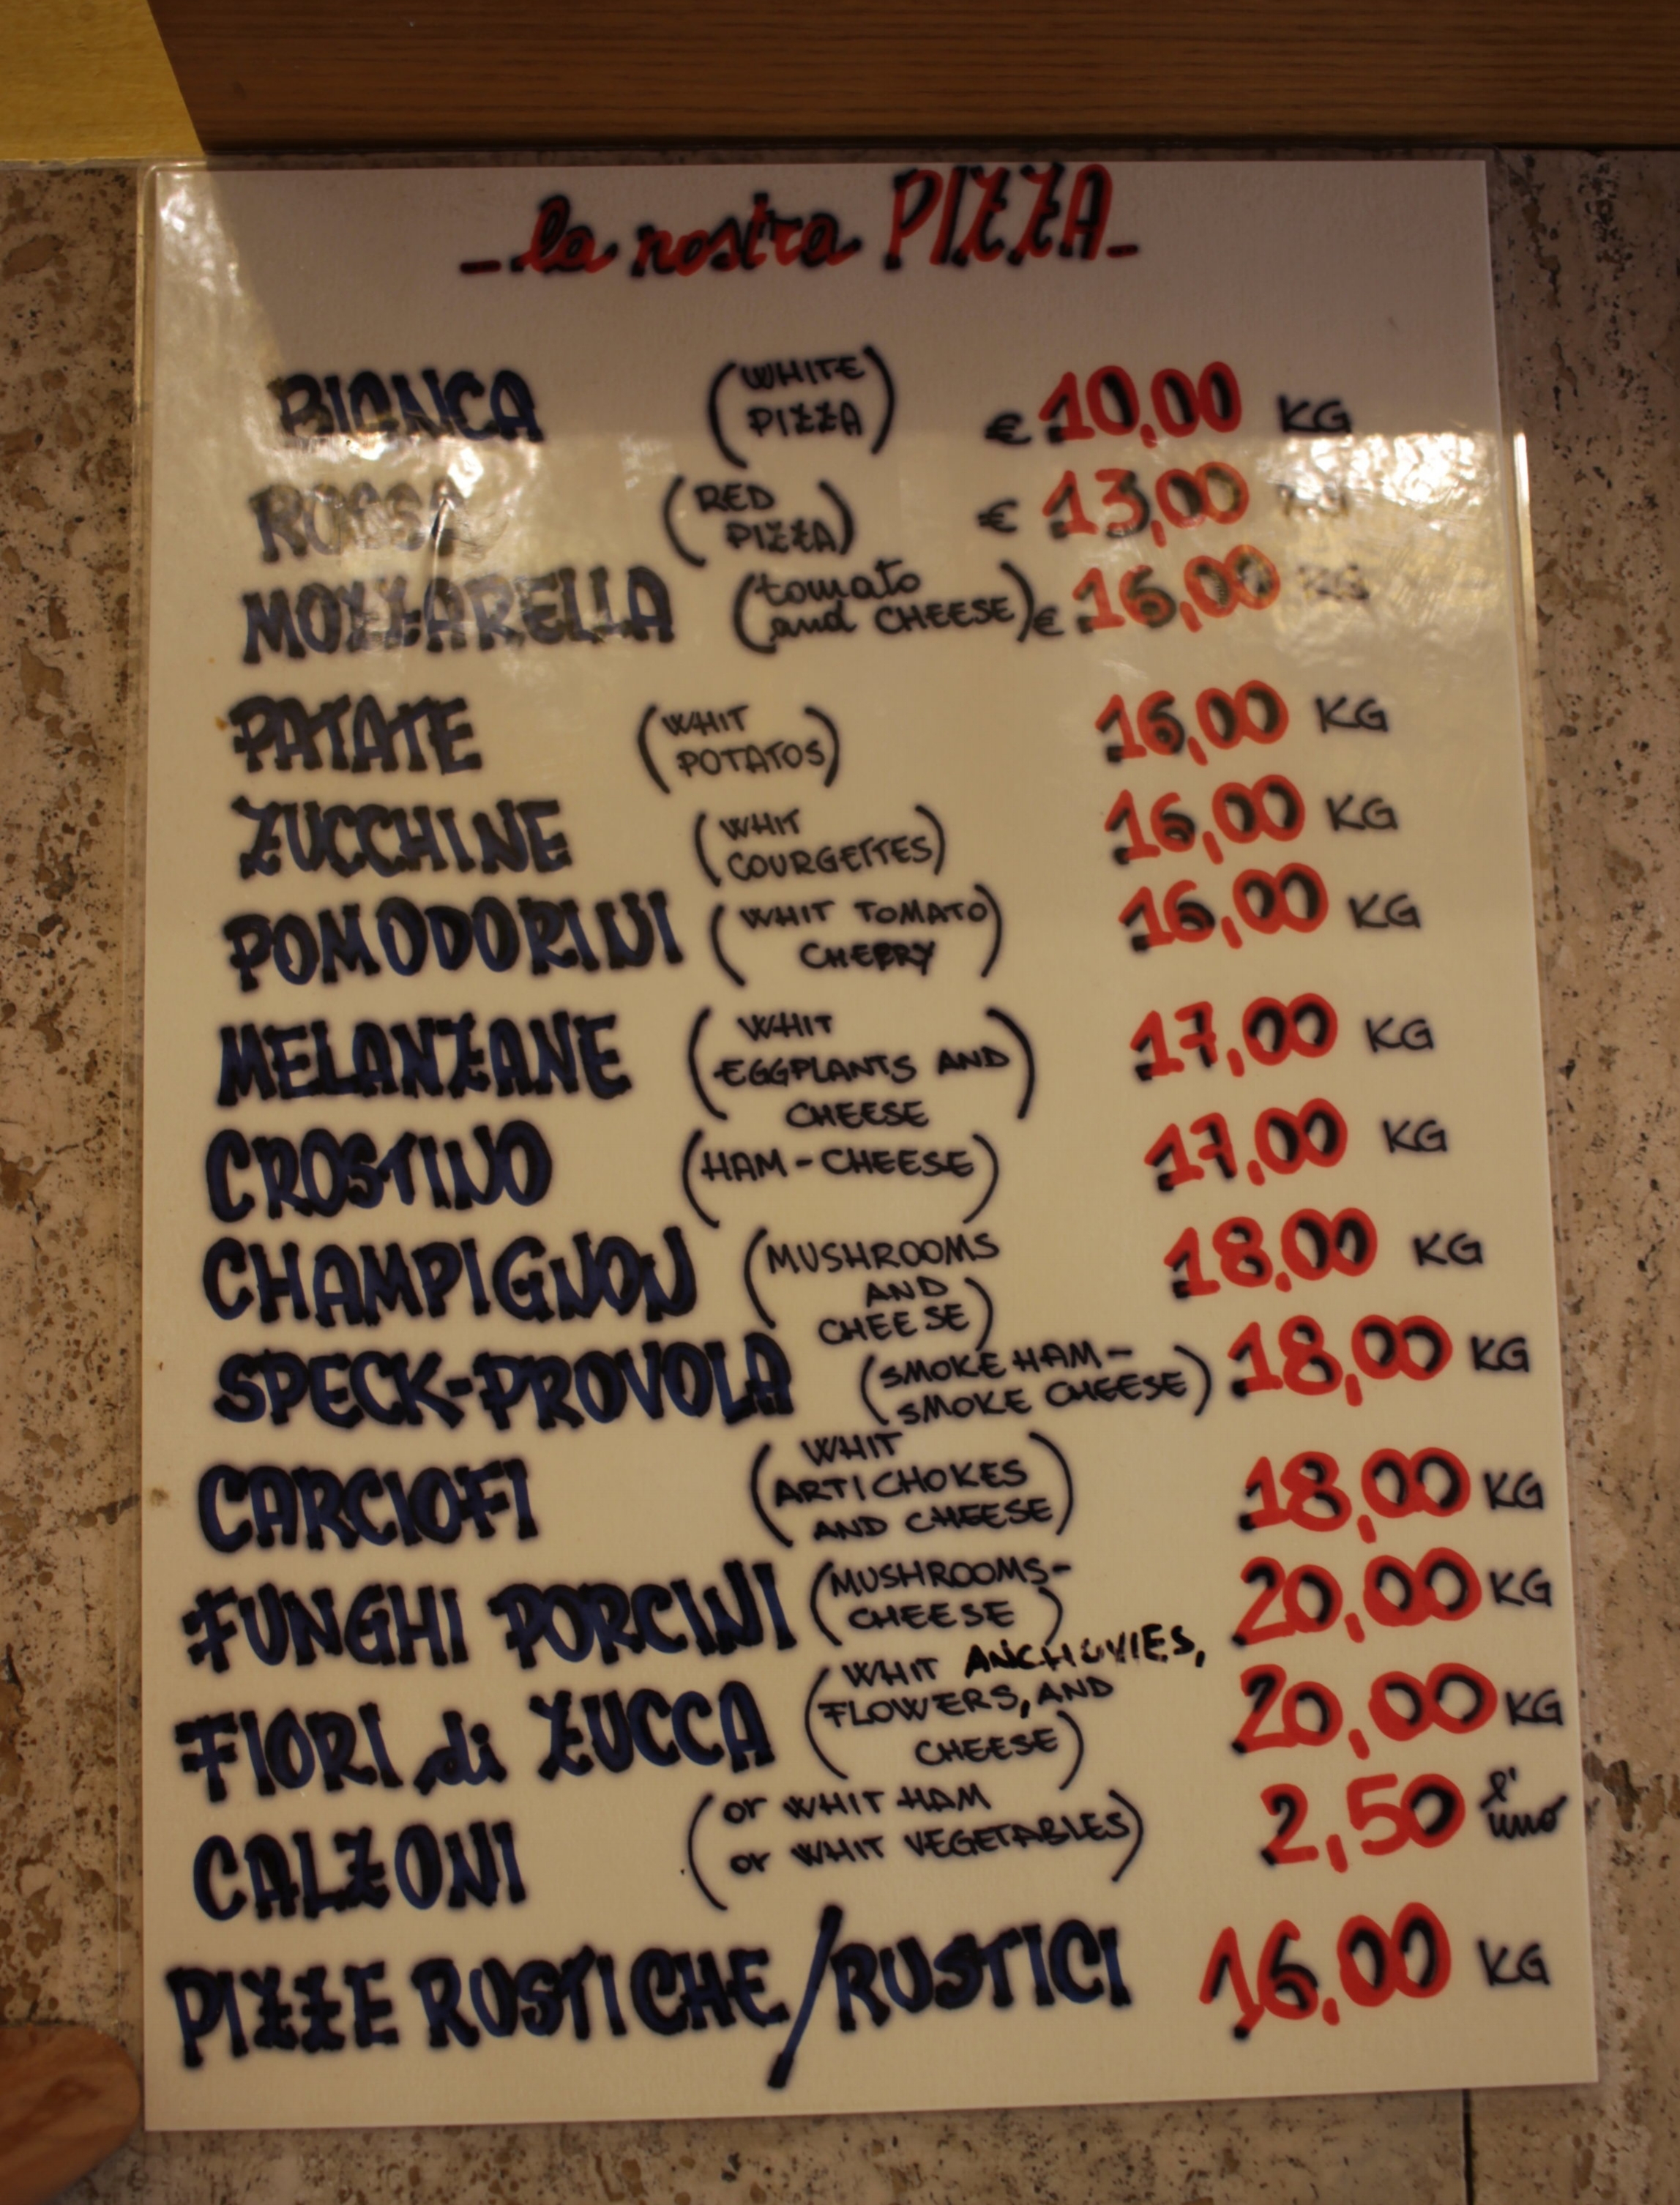 la nostra PIZZA
BIANCA (WHITE PIZZA) € 10,00 KG
ROSSA (RED PIZZA) € 13,00
MOZZARELLA (tomato and CHEESE) € 16,00 KG
PATATE (WHIT POTATOS) 16,00 KG
ZUCCHINE (WHIT COURGETTES) 16,00 KG
POMODORINI (WHIT TOMATO CHERRY) 16,00 KG
MELANZANE (WHIT EGGPLANTS AND CHEESE) 17,00 KG
CROSTINO (HAM-CHEESE) 17,00 KG
CHAMPIGNON (MUSHROOMS AND CHEESE) 18,00 KG
SPECK-PROVOLA (SMOKE HAM- SMOKE CHEESE) 18,00 KG
CARCIOFI (WHIT ARTICHOKES AND CHEESE) 18,00 KG
FUNGHI PORCINI (MUSHROOMS- CHEESE) 20,00 KG
FIORI di ZUCCA (WHIT ANCHOVIES, FLOWERS, AND CHEESE) 20,00 KG
CALZONI (or WHIT HAM or WHIT VEGETABLES) 2,50 l'uno
PIZZE RUSTICHE/RUSTICI 16,00 KG